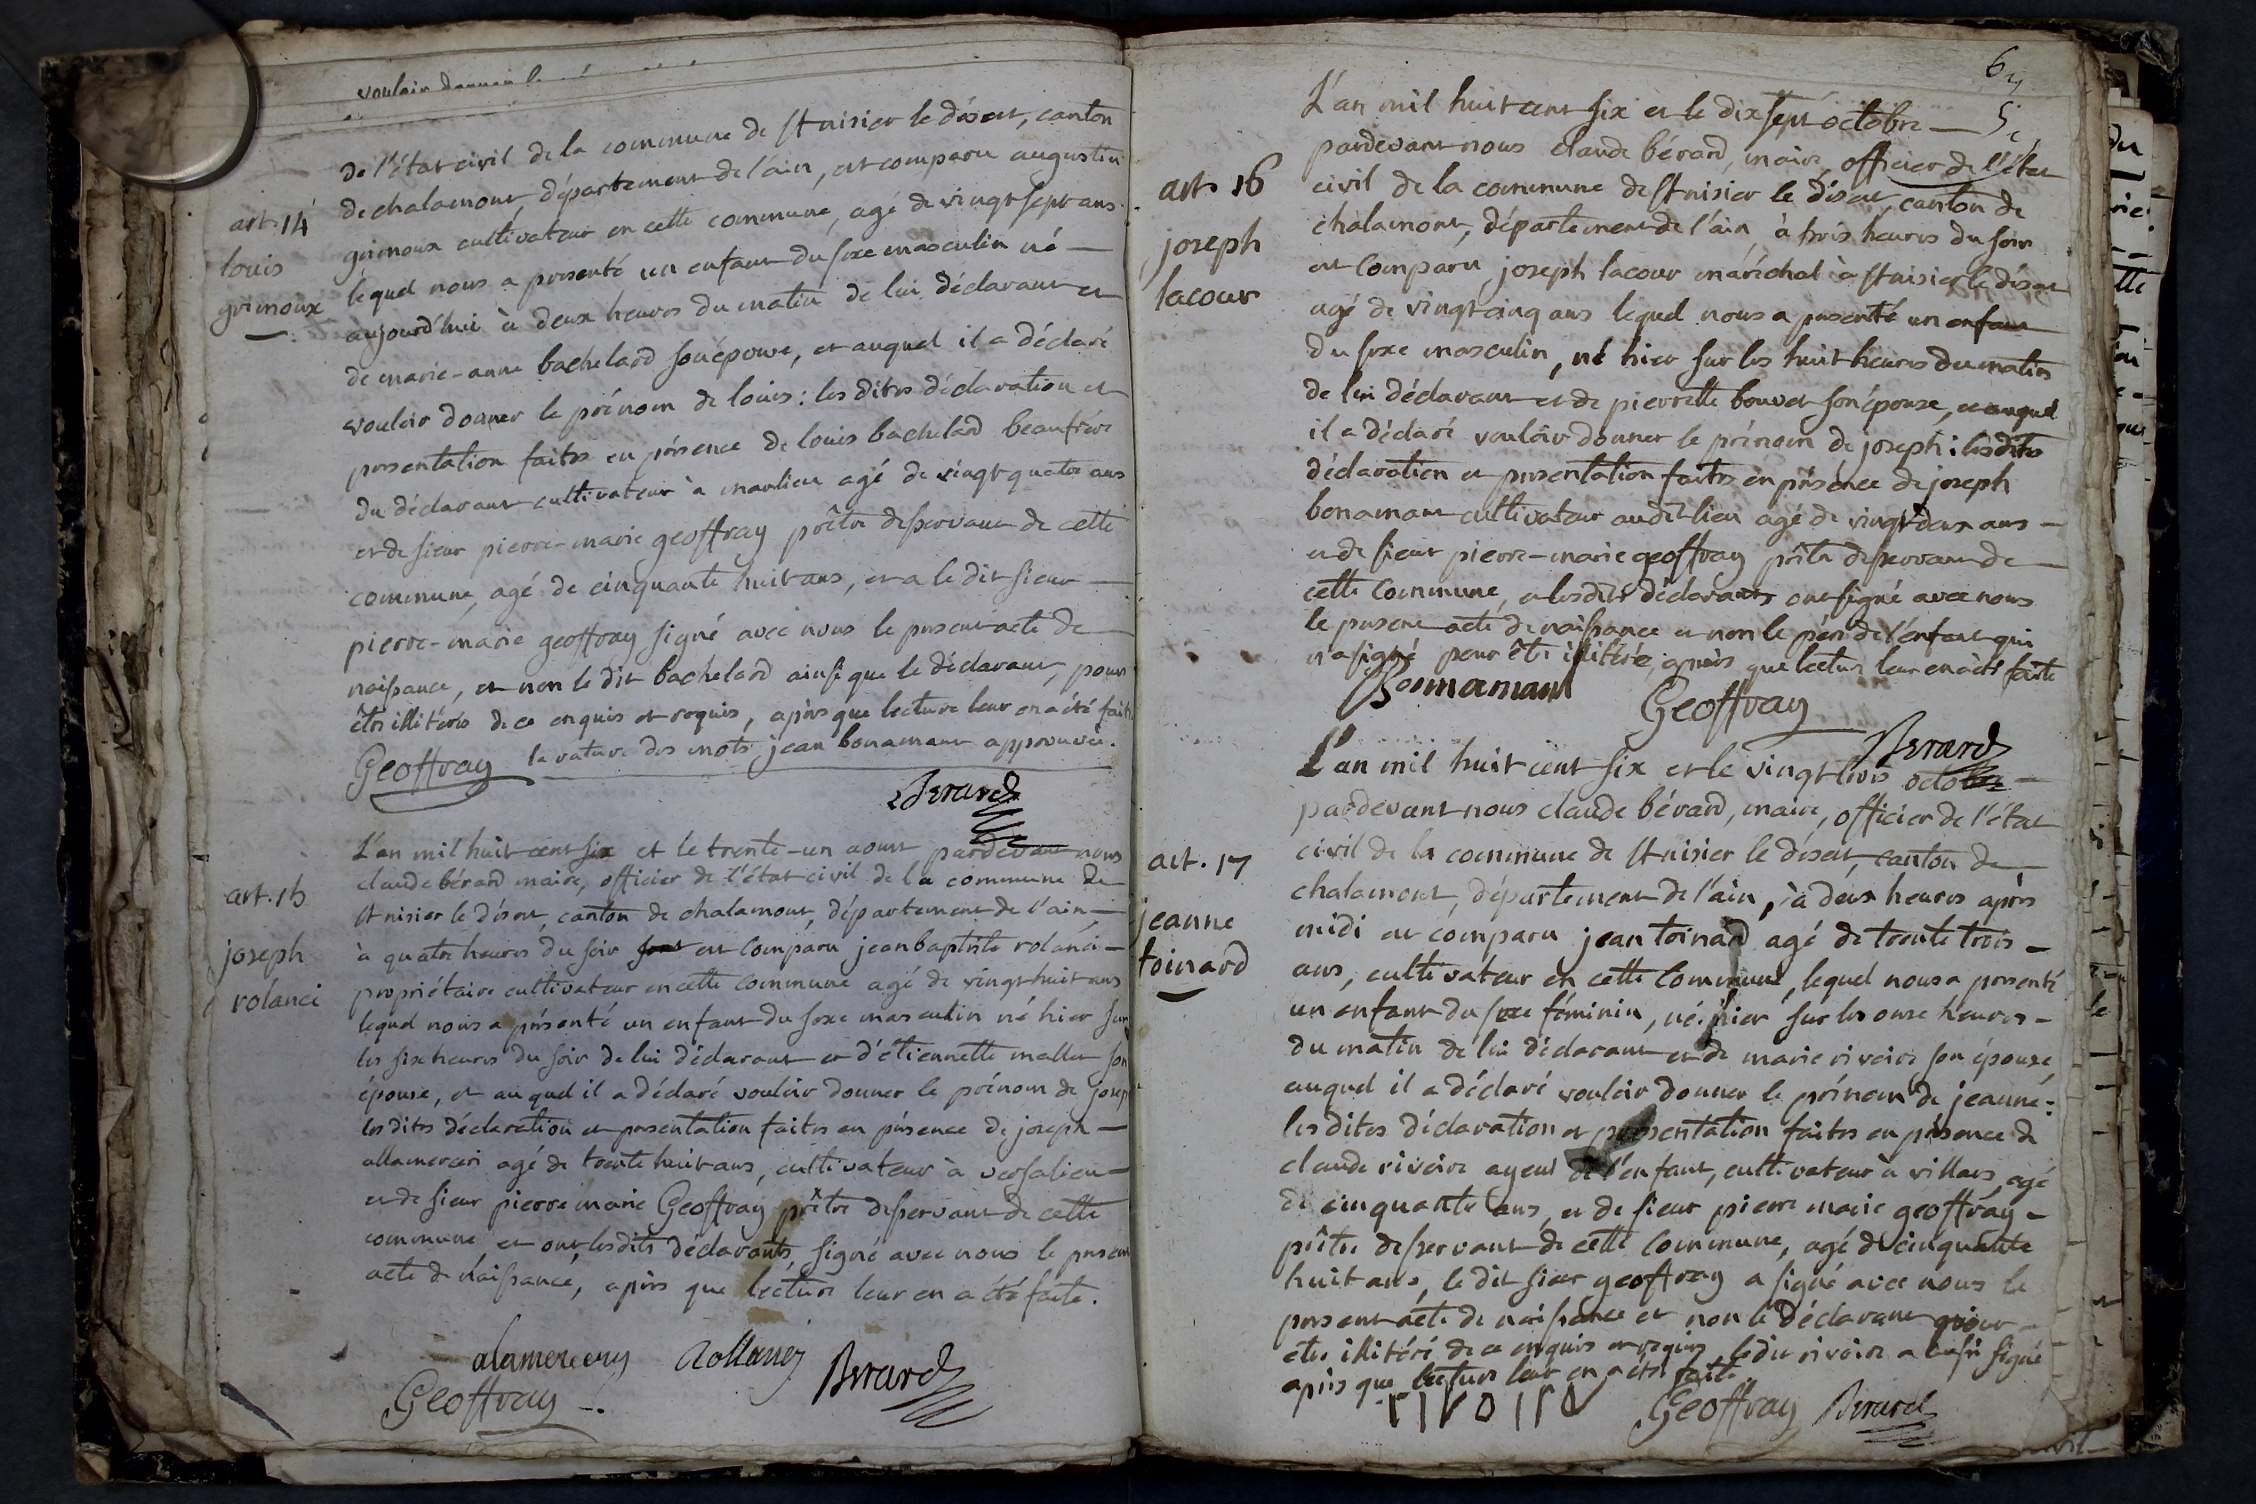 vouloir donner le
de l'état civil de la commune de St nisier le désert, canton
de chalamont, département de l'ain, est comparu augustin
grimoux cultivateur en cette commune, agé de vingt sept ans
lequel nous a présenté un enfant du sexe masculin né —
aujourd'hui à deux heures du matin de lui déclarant et
de marie-anne bachelard son épouse, et auquel il a déclaré
vouloir donner le prénom de louis : les dites déclaration et
presentation faites en présence de louis bachelard beaufrère
du déclarant cultivateur à marlieu agé de vingt quatre ans
et de sieur pierre-marie geoffray prêtre desservant de cette
commune, agé de cinquante huit ans, et a le dit sieur —
pierre-marie geoffray signé avec nous le present acte de
naissance, et non le dit bachelard ainsi que le déclarant, pour
être illitérés de ce enquis et requis, après que lecture leur en a été faite
Geoffray la rature des mots jean bonamant approuvée.
Berard
art. 14
louis
grimoux
L'an mil huit cent six et le trente-un aoust pardevant nous
claude bérard maire, officier de l'état civil de la commune de
St nisier le désert, canton de chalamont, département de l'ain, —
à quatre heures du soir est comparu jean baptiste rolanci —
propriétaire cultivateur en cette commune agé de vingt huit ans
lequel nous a présenté un enfant du sexe masculin né hier sur
les six heures du soir de lui déclarant et d'étiennette mallet son
épouse, et auquel il a déclaré vouloir donner le prénom de joseph
les dites déclaration et presentation faites en présence de joseph —
allamerceri agé de trente huit ans, cultivateur à versalieu —
et de sieur pierre marie Geoffray prêtre desservant de cette
commune et ont les dits déclarants, signé avec nous le present
acte de naissance, après que lecture leur en a été faite.
alamercery Rollancy Berard
Geoffray
art. 15
joseph
rolanci
6
5
L'an mil huit cent six et le dix sept octobre —
pardevant nous claude bérard, maire, officier de l'état
civil de la commune de St nisier le désert, canton de
chalamont, département de l'ain, à trois heures du soir
est comparu joseph lacour maréchal à St nisier le désert
agé de vingt cinq ans lequel nous a presenté un enfant
du sexe masculin, né hier sur les huit heures du matin
de lui déclarant et de pierrette bouvet son épouse, et auquel
il a déclaré vouloir donner le prénom de joseph : les dites
déclaration et presentation faites en présence de joseph
bonamant cultivateur audit lieu agé de vingt deux ans —
et de sieur pierre-marie geoffray prêtre desservant de —
cette commune, et les dits déclarants ont signé avec nous
le present acte de naissance et non le père de l'enfant qui
n'a signé pour être illitéré, après que lecture leur en a été faite
Bonnamant Geoffray
Berard
art. 16
joseph
lacour
L'an mil huit cent six et le vingt trois octobre —
pardevant nous claude bérard, maire, officier de l'état
civil de la commune de St nisier le désert, canton de —
chalamont, département de l'ain, à deux heures après
midi est comparu jean toinard agé de trente trois —
ans, cultivateur en cette commune, lequel nous a presenté
un enfant du sexe féminin, né hier sur les onze heures —
du matin de lui déclarant et de marie rivoire son épouse,
auquel il a déclaré vouloir donner le prénom de jeanne :
les dites déclaration et presentation faites en présence de
claude rivoire ayeul de l'enfant, cultivateur à villars, agé
de cinquante ans, et de sieur pierre marie geoffray —
prêtre desservant de cette commune, agé de cinquante
huit ans, le dit sieur geoffray a signé avec nous le
present acte de naissance et non le déclarant pour —
être illitéré de ce enquis et requis, le dit rivoire a aussi signé
après que lecture leur en a été faite.
rivoire Geoffray Berard
art. 17
jeanne
toinard